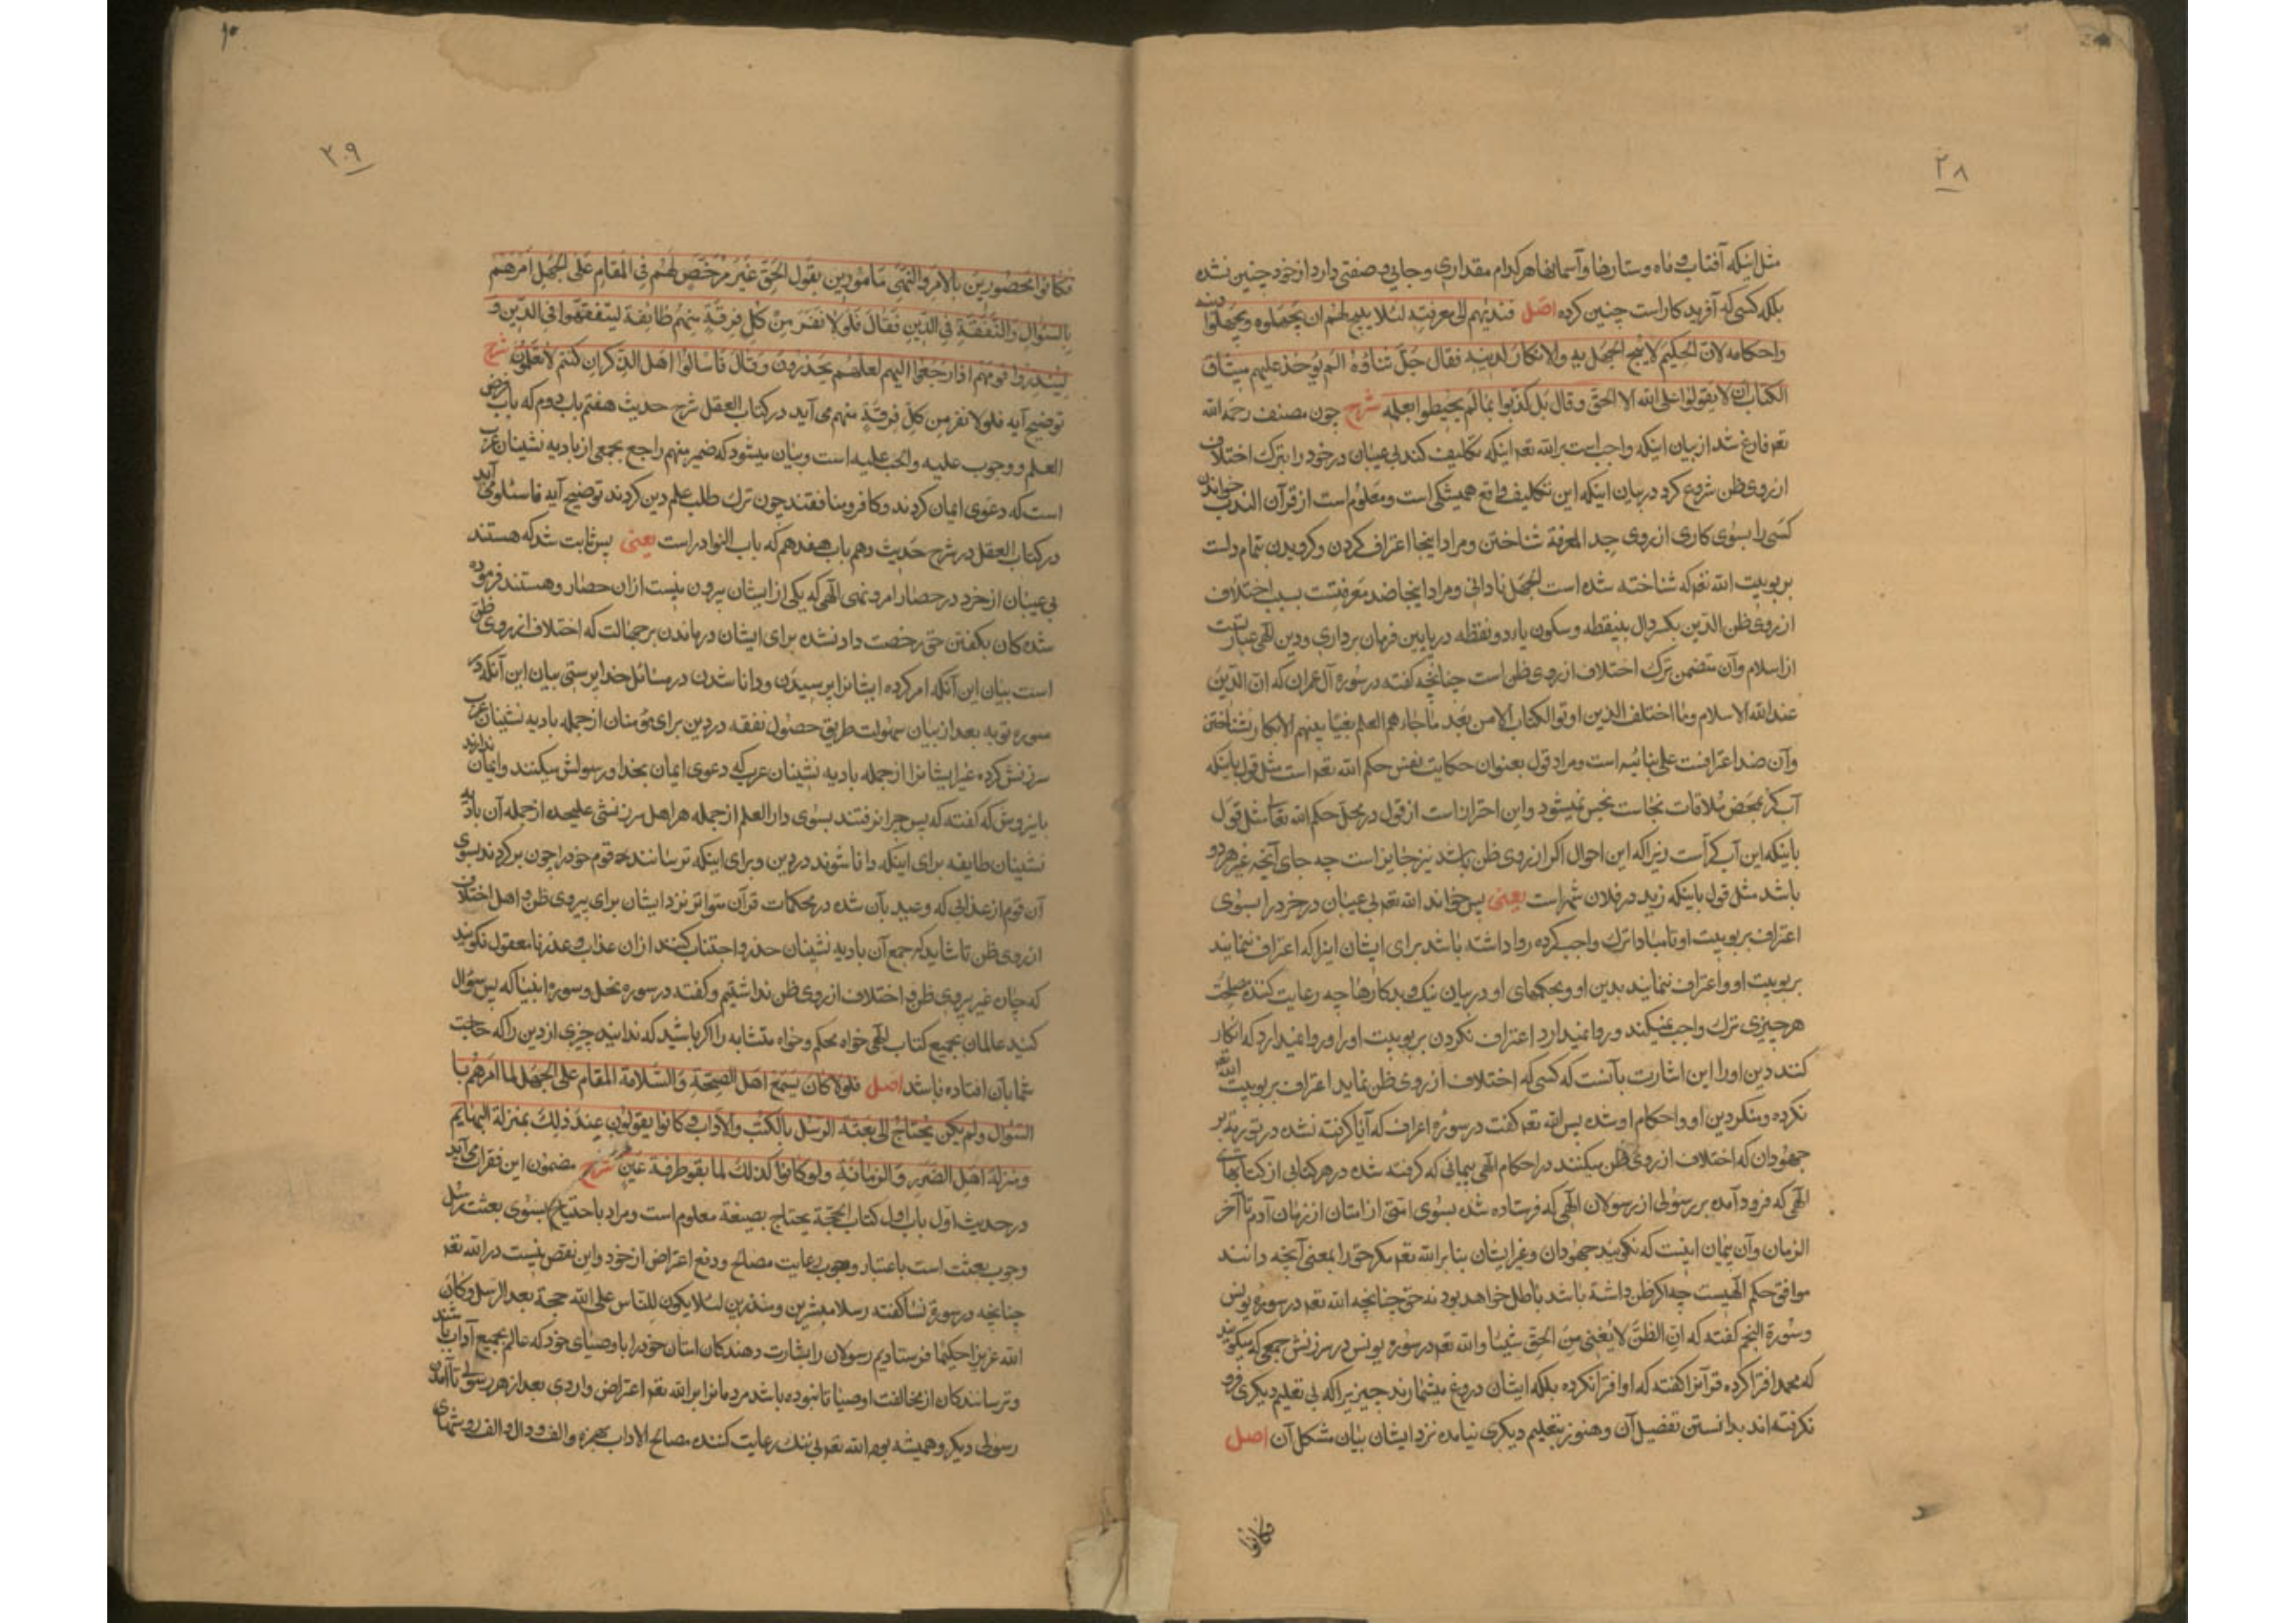 ۲۸
مثل اینکه آفتاب و ماه و ستارها و آسمانها هر کدام مقداری و جایی و صفتی دارد از خود چنین نشده
بلکه کسی که آفریدکار است چنین کرده اصل فندبهم الی معرفته لئلا یبیح لهم ان یجهلوه و یجهلوا دینه
واحکامه لان الحکیم لا یبیح الجهل به والانکار لدینه فقال جل ثناؤه الم یؤخذ علیهم میثاق
الکتاب ان لا یقولوا علی الله الا الحق وقال بل کذبوا بما لم یحیطوا بعلمه شرح چون مصنف رحمه الله
تعه فارغ شد از بیان اینکه واجب است بر الله تعه اینکه تکلیف کند بی عیبان در خود را بترک اختلاف
از روی ظن شروع کرد در بیان اینکه این تکلیف واقع همیشکی است و معلوم است از قرآن الندب خواندن
کسی را بسوی کاری از روی جد المعرفة شناختن و مراد اینجا اعتراف کردن و کرویدن بتمام دلست
بربوبیت الله تعه که شناخته شده است الجهل نادانی و مراد اینجا ضد معرفتست بسبب اختلاف
از روی ظن الدین بکسر دال بینقطه و سکون یاء دو نقطه در پایین فرمان برداری و دین الهی عبارتست
از اسلام و آن متضمن ترک اختلاف از روی ظن است چنانچه کفته در سوره آل عمران که ان الدین
عند الله الاسلام وما اختلف الذین اوتوا الکتاب الا من بعد ما جاءهم العلم بغیا بینهم الانکار نشناختن
و آن ضد اعترافست علی بنائیه است و مراد قول بعنوان حکایت نفس حکم الله تعه است مثل قول باینکه
آب کر بمحض ملاقات نجاست نجس نمیشود و این احتراز است از قول در محل حکم الله تعا مثل قول
باینکه این آب کر است زیرا که این احوال اکر از روی ظن باشد نیز جایز است چه جای آنچه غیر هر دو
باشد مثل قول باینکه زید در فلان شهر است یعنی پس خواند الله تعه بی عیبان در خرد را بسوی
اعتراف بربوبیت او تا مبادا ترک واجب کرده روا داشته باشد برای ایشان اینرا که اعتراف ننمایند
بربوبیت او و اعتراف ننمایند بدین او و بحکمهای او در بیان نیک و بد کارها چه رعایت کننده مصلحت
هر چیزی ترک واجب نمیکند و روا نمیدارد اعتراف نکردن بربوبیت او را و روا نمیدارد که انکار
کنند دین او را این اشارت بآنست که کسی که اختلاف از روی ظن نماید اعتراف بربوبیت الله تعه
نکرده و منکر دین او و احکام او شده پس الله تعه کفت در سوره اعراف که آیا کرفته نشده در توریه بر
جهودان که اختلاف از روی ظن میکنند در احکام الهی پیمانی که کرفته شده در هر کتابی از کتابهای
الهی که فرود آمده بر رسولی از رسولان الهی که فرستاده شده بسوی امتی از امتان از زمان آدم تا آخر
الزمان و آن پیمان اینست که نکویند جهودان و غیر ایشان بنا بر الله تعه مکر حق را بمعنی آنچه دانند
موافق حکم الهیست چه اکر ظن داشته باشد باطل خواهد بود نه حق چنانچه الله تعه در سوره یونس
و سورة النجم کفته که ان الظن لا یغنی من الحق شیئا و الله تعه در سوره یونس در سرزنش جمعی که میکویند
که محمد افترا کرده قرآنرا کفته که او افترا نکرده بلکه ایشان دروغ میشمارند چیزیرا که بی تعلیم دیکری فرو
نکرفته اند بدانستن تفصیل آن و هنوز بتعلیم دیکری نیامده نزد ایشان بیان مشکل آن اصل
فکانوا
۲۰۹
فکانوا محصورین بالامر والنهی مامورین بقول الحق غیر مرخص لهم فی المقام علی الجهل امرهم
بالسؤال والتفقه فی الدین فقال فلولا نفر من کل فرقة منهم طائفة لیتفقهوا فی الدین و
لینذروا قومهم اذا رجعوا الیهم لعلهم یحذرون وقال فاسألوا اهل الذکر ان کنتم لا تعلمون شرح
توضیح آیه فلولا نفر من کل فرقة منهم می آید در کتاب العقل شرح حدیث هفتم باب دوم که باب فرض
العلم و وجوب علیه والحب علیه است و بیان میشود که ضمیر منهم راجع بجمعی از بادیه نشینان عرب
است که دعوی ایمان کردند و کافر و منافقند چون ترک طلب علم دین کردند توضیح آیه فاسئلوا می آید
در کتاب العقل در شرح حدیث دهم باب هفدهم که باب النوادر است یعنی پس ثابت شد که هستند
بی عیبان از خرد در حصار امر و نهی الهی که یکی از ایشان بیرون نیست ازان حصار و هستند فرموده
شده کان بکفتن حق رخصت داد نشده برای ایشان در ماندن بر جهالت که اختلاف از روی ظن
است بیان این آنکه امر کرده ایشانرا بپرسیدن و دانا شدن در مسائل خدا پرستی بیان این آنکه در
سوره توبه بعد از بیان سهولت طریق حصول تفقه در دین برای مؤمنان از جمله بادیه نشینان عرب
سرزنش کرده غیر ایشانرا از جمله بادیه نشینان عرب که دعوی ایمان بخدا و رسولش میکنند و ایمان ندارند
باین روش که کفته که پس چرا نرفتند بسوی دار العلم از جمله هر اهل سرزنشی علیحده از جمله آن بادیه
نشینان طایفه برای اینکه دانا شوند در دین و برای اینکه ترسانند قوم خود را چون بر کردند بسوی
آن قوم از عذابی که وعید بآن شده در محکمات قرآن متواتر نزد ایشان برای پیروی ظن و اهل اختلاف
از روی ظن تا شاید که جمع آن بادیه نشینان حذر و اجتناب کنند ازان عذاب و عذر نامعقول نکویند
که چاره غیر پیروی ظن و اختلاف از روی ظن نداشتیم و کفته در سوره نحل و سوره انبیا که پس سؤال
کنید عالمان بجمیع کتاب الهی خواه محکم و خواه متشابه را اکر باشید که ندانید چیزی از دین را که حاجت
شما بآن افتاده باشد اصل فلو کان یسع اهل الصحة والسلامة المقام علی الجهل لما امرهم با
السؤال ولم یکن یحتاج الی بعثة الرسل بالکتب والآداب وکانوا یقولون عند ذلک بمنزلة البهایم
ومنزلة اهل الضرر والزمانة ولو کانوا کذلک لما بقوا طرفة عین شرح مضمون این فقرات می آید
در حدیث اول باب اول کتاب الحجة یحتاج بصیغه معلوم است و مراد باحتیاج بسوی بعثت رسل
وجوب بعثت است باعتبار وجوب رعایت مصالح و دفع اعتراض از خود و این نقص نیست در الله تعه
چنانچه در سورة نسا کفته رسلا مبشرین و منذرین لئلا یکون للناس علی الله حجة بعد الرسل وکان
الله عزیزا حکیما فرستادیم رسولان را بشارت دهندکان امتان خود را باوصیای خود که عالم بجمیع آداب باشند
و ترسانندکان از مخالفت اوصیا تا نبوده باشد مردمانرا بر الله تعه اعتراض واردی بعد از هر رسولی تا آمدن
رسولی دیکر و همیشه بوده الله تعه بی ننک رعایت کننده مصالح الاداب بهمزه و الف و دال و الف روشهای